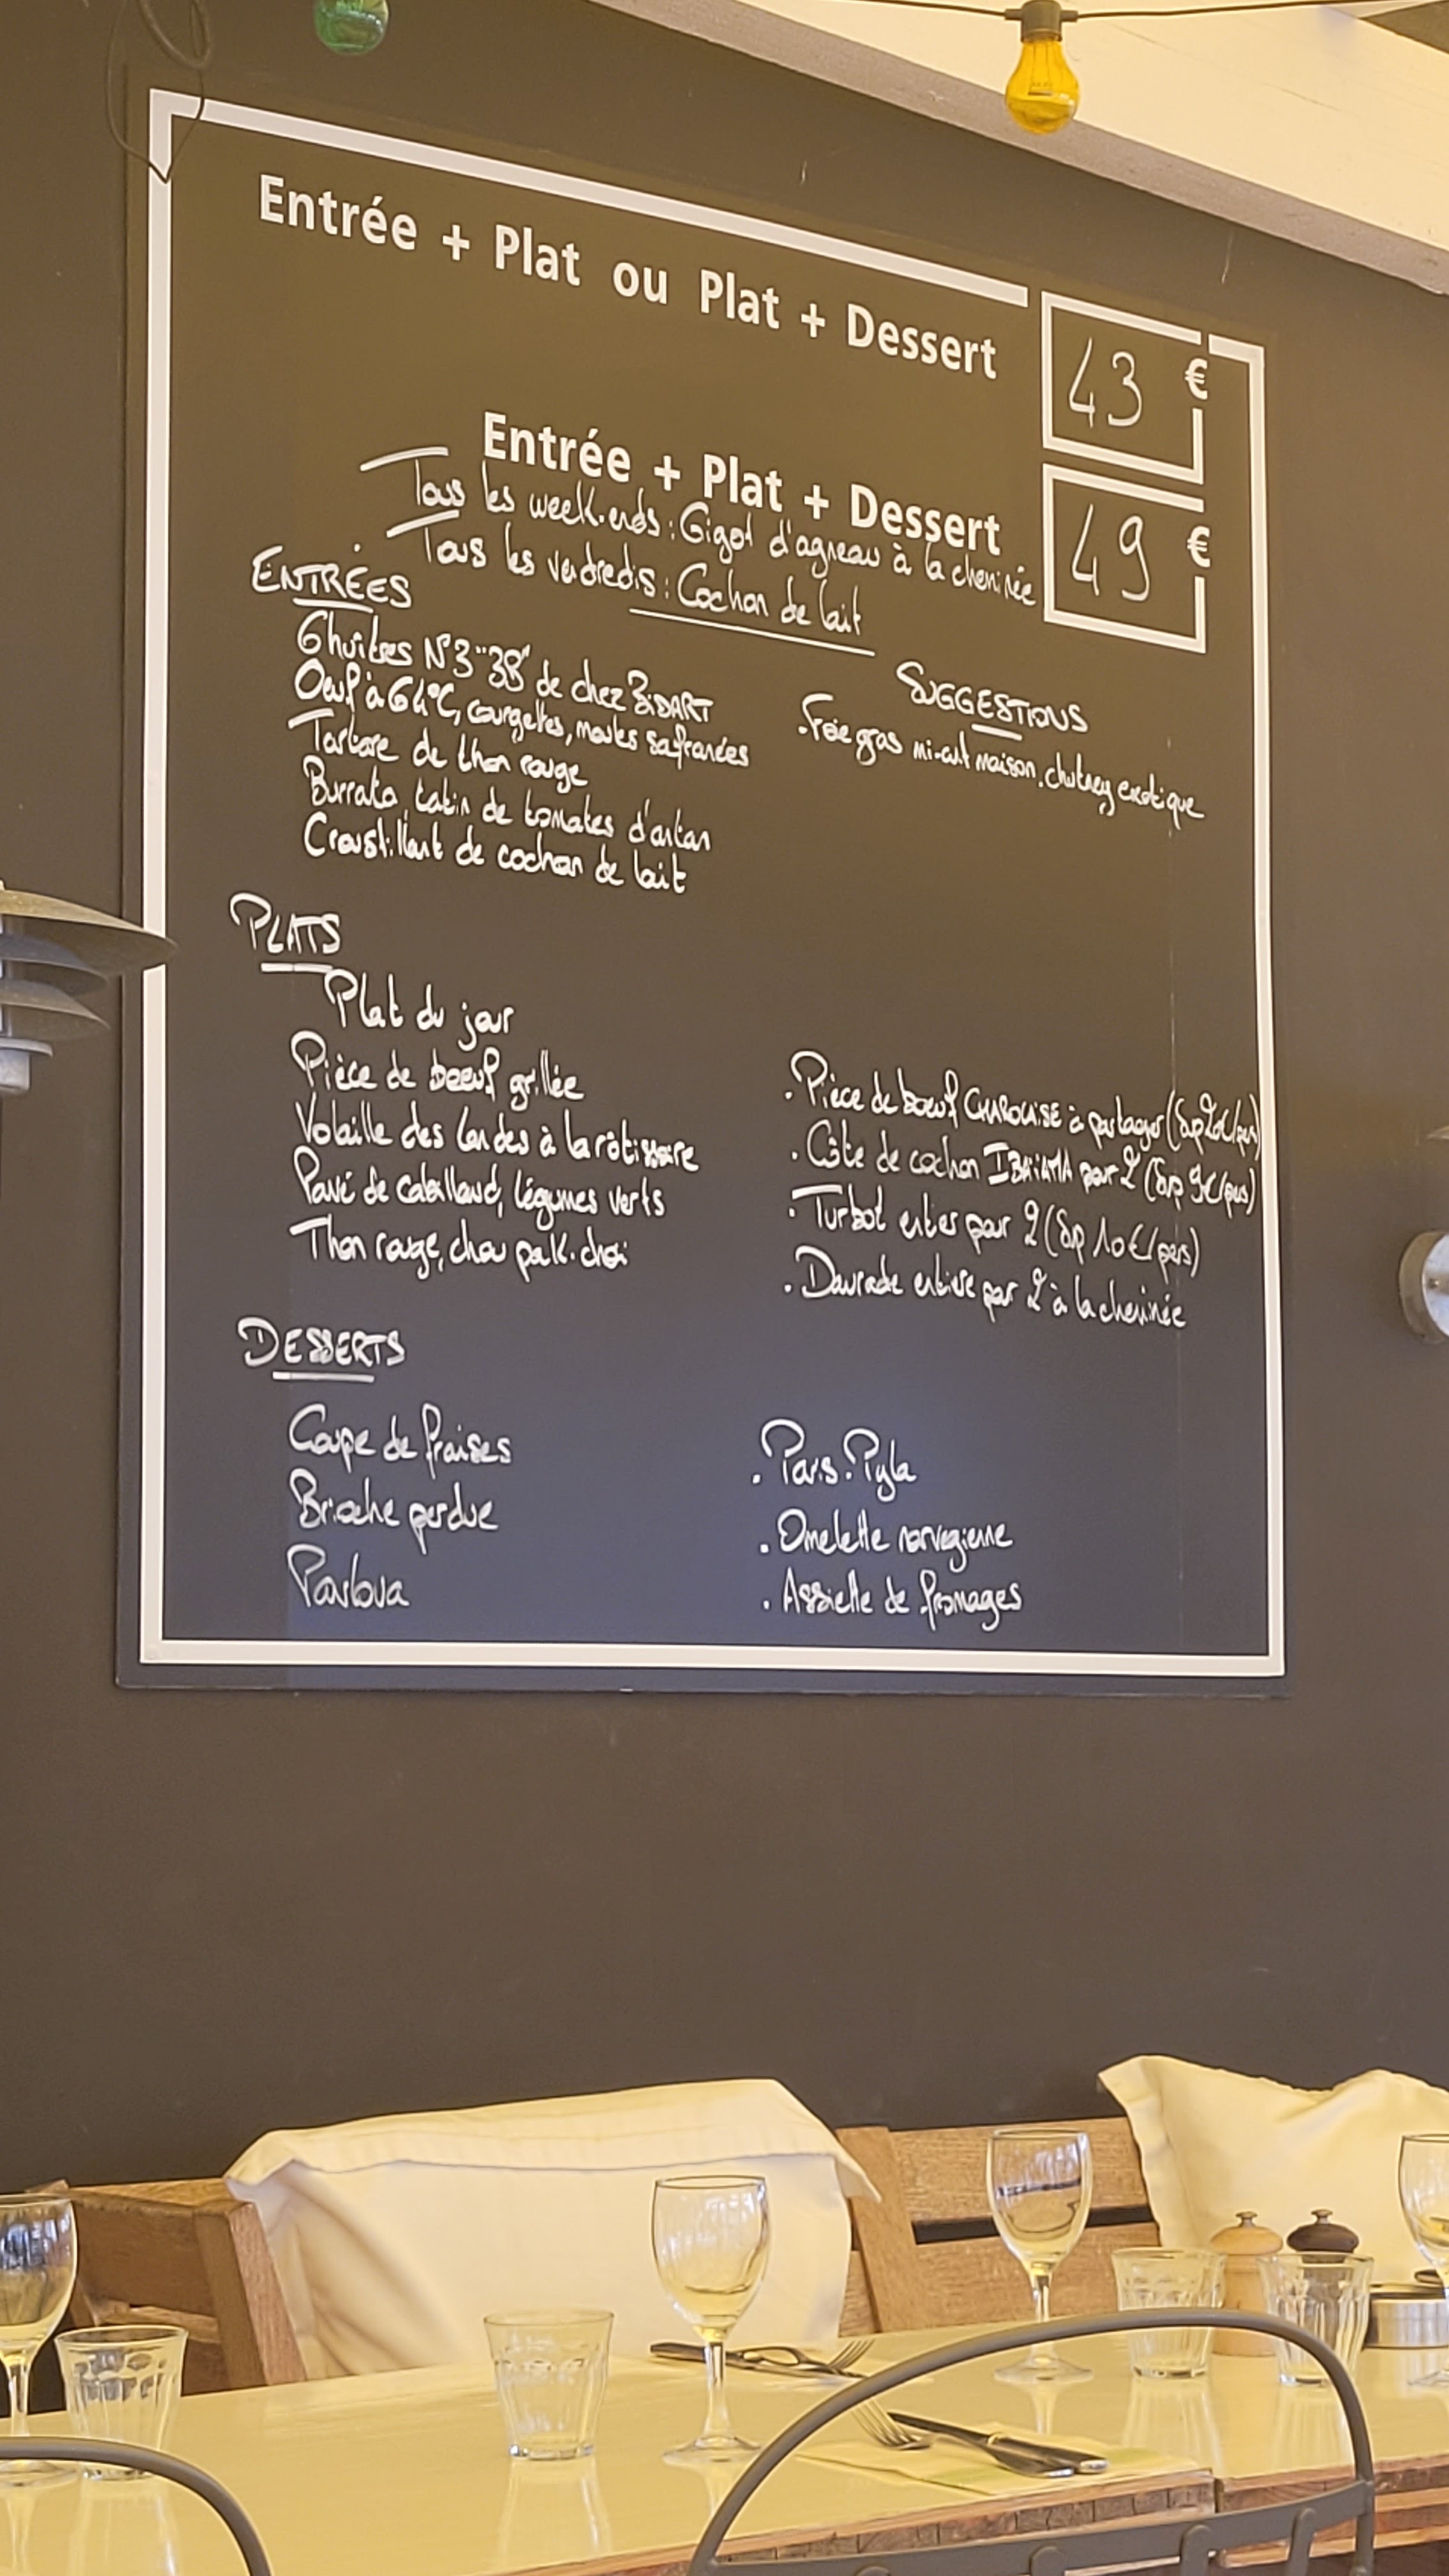 Entrée + Plat ou Plat + Dessert
43 €
Entrée + Plat + Dessert
49 €
Tous les week-ends : Gigot d'agneau à la cheminée
Tous les vendredis : Cochon de lait
ENTRÉES
6 huîtres N°3 "38" de chez BIDART
Oeuf à 64°C, courgettes, moules safranées
Tartare de thon rouge
Burrata, tatin de tomates d'antan
Croustillant de cochon de lait
SUGGESTIONS
. Foie gras mi-cuit maison, chutney exotique
PLATS
Plat du jour
Pièce de boeuf grillée
Volaille des Landes à la rôtissoire
Pavé de cabillaud, légumes verts
Thon rouge, chou pak-choi
. Pièce de boeuf CHAROLAISE à partager (Sup /pers)
. Côte de cochon IBAÏAMA pour 2 (Sup 9€/pers)
. Turbot entier pour 2 (Sup 10€/pers)
. Daurade entière pour 2 à la cheminée
DESSERTS
Coupe de fraises
Brioche perdue
Pavlova
. Paris-Pyla
. Omelette norvegienne
. Assiette de fromages